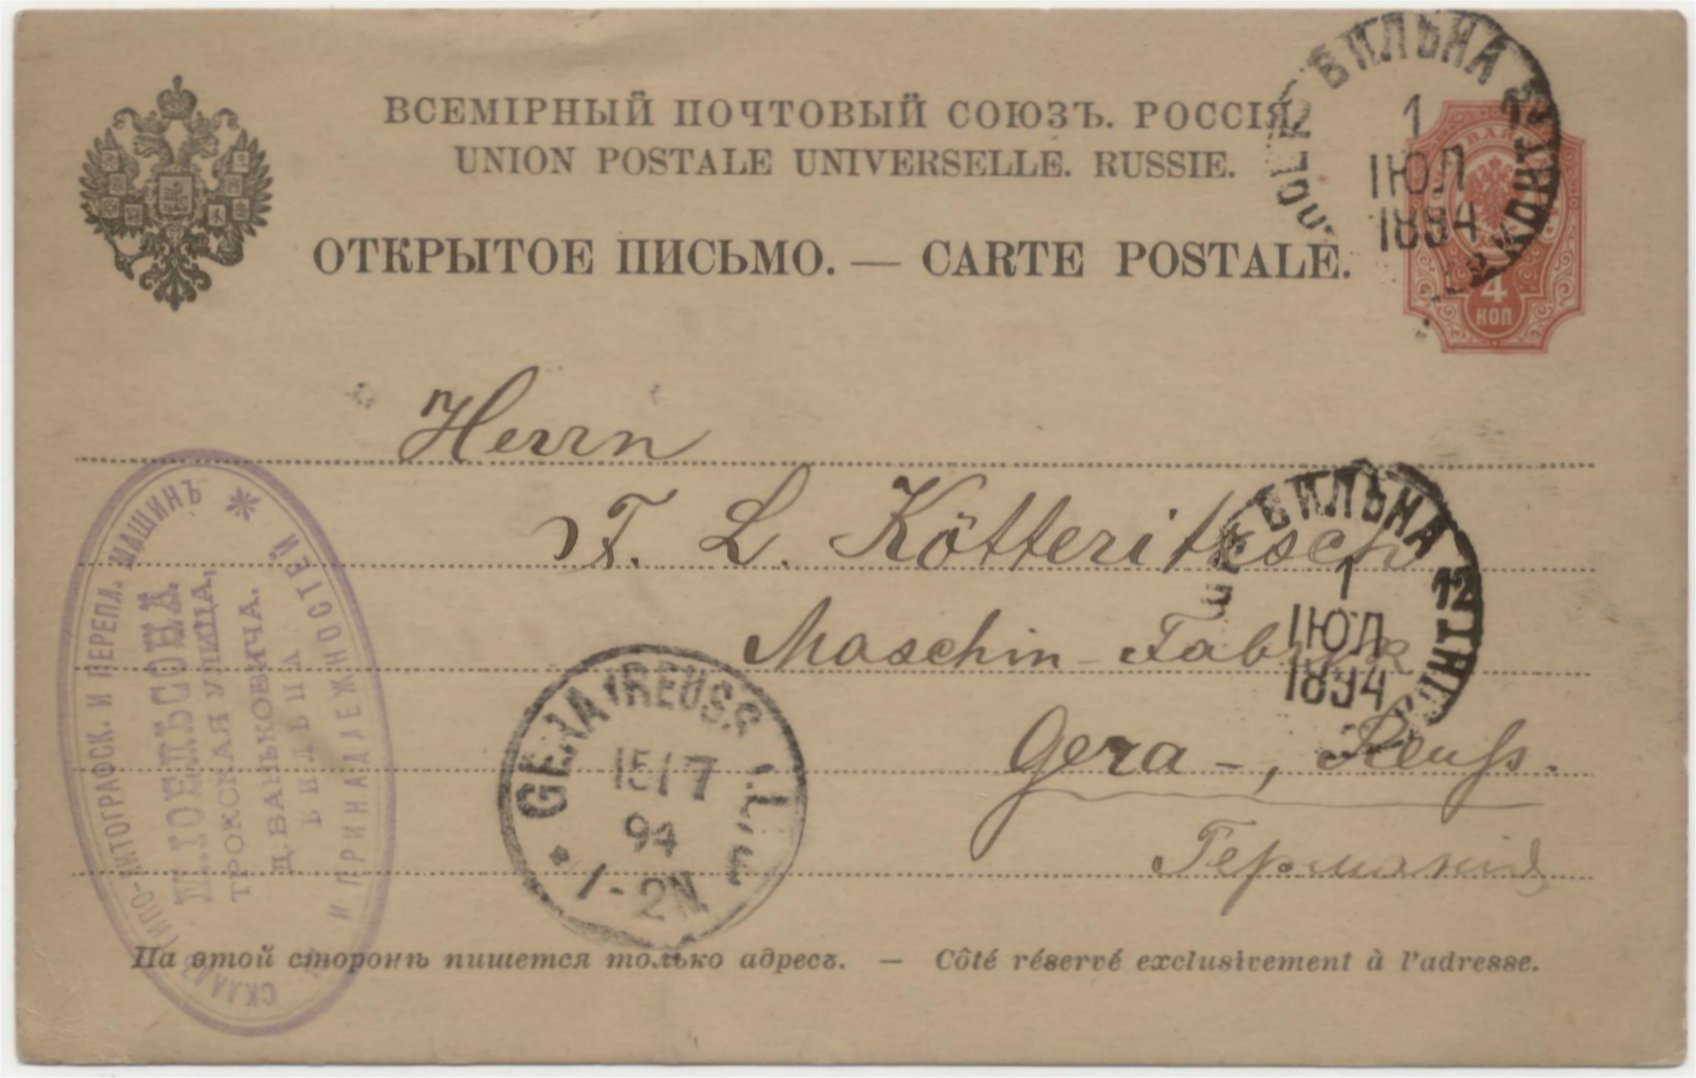 ВСЕМІРНЫЙ ПОЧТОВЫЙ СОЮЗЪ. РОССІЯ.
UNION POSTALE UNIVERSELLE. RUSSIE.
ОТКРЫТОЕ ПИСЬМО. — CARTE POSTALE.
ВИЛЬНА
12
1
ІЮЛ
1894
4
КОП
Herrn
F. L. Kötteritzsch
Maschin-Fabrik
Gera -, Reuß.
Германія
ВИЛЬНА
12
1
ІЮЛ
1894
GERA (REUSS
15/7
94
1-2N
СКЛАДЪ ТИПО-ЛИТОГРАФСК. И ПЕРЕПЛ. МАШИНЪ
И ПРИНАДЛЕЖНОСТЕЙ
ТРОКСКАЯ УЛИЦА,
Д. ВАНЬКОВИЧА.
ВИЛЬНА
На этой сторонѣ пишется только адресъ. — Côté réservé exclusivement à l'adresse.